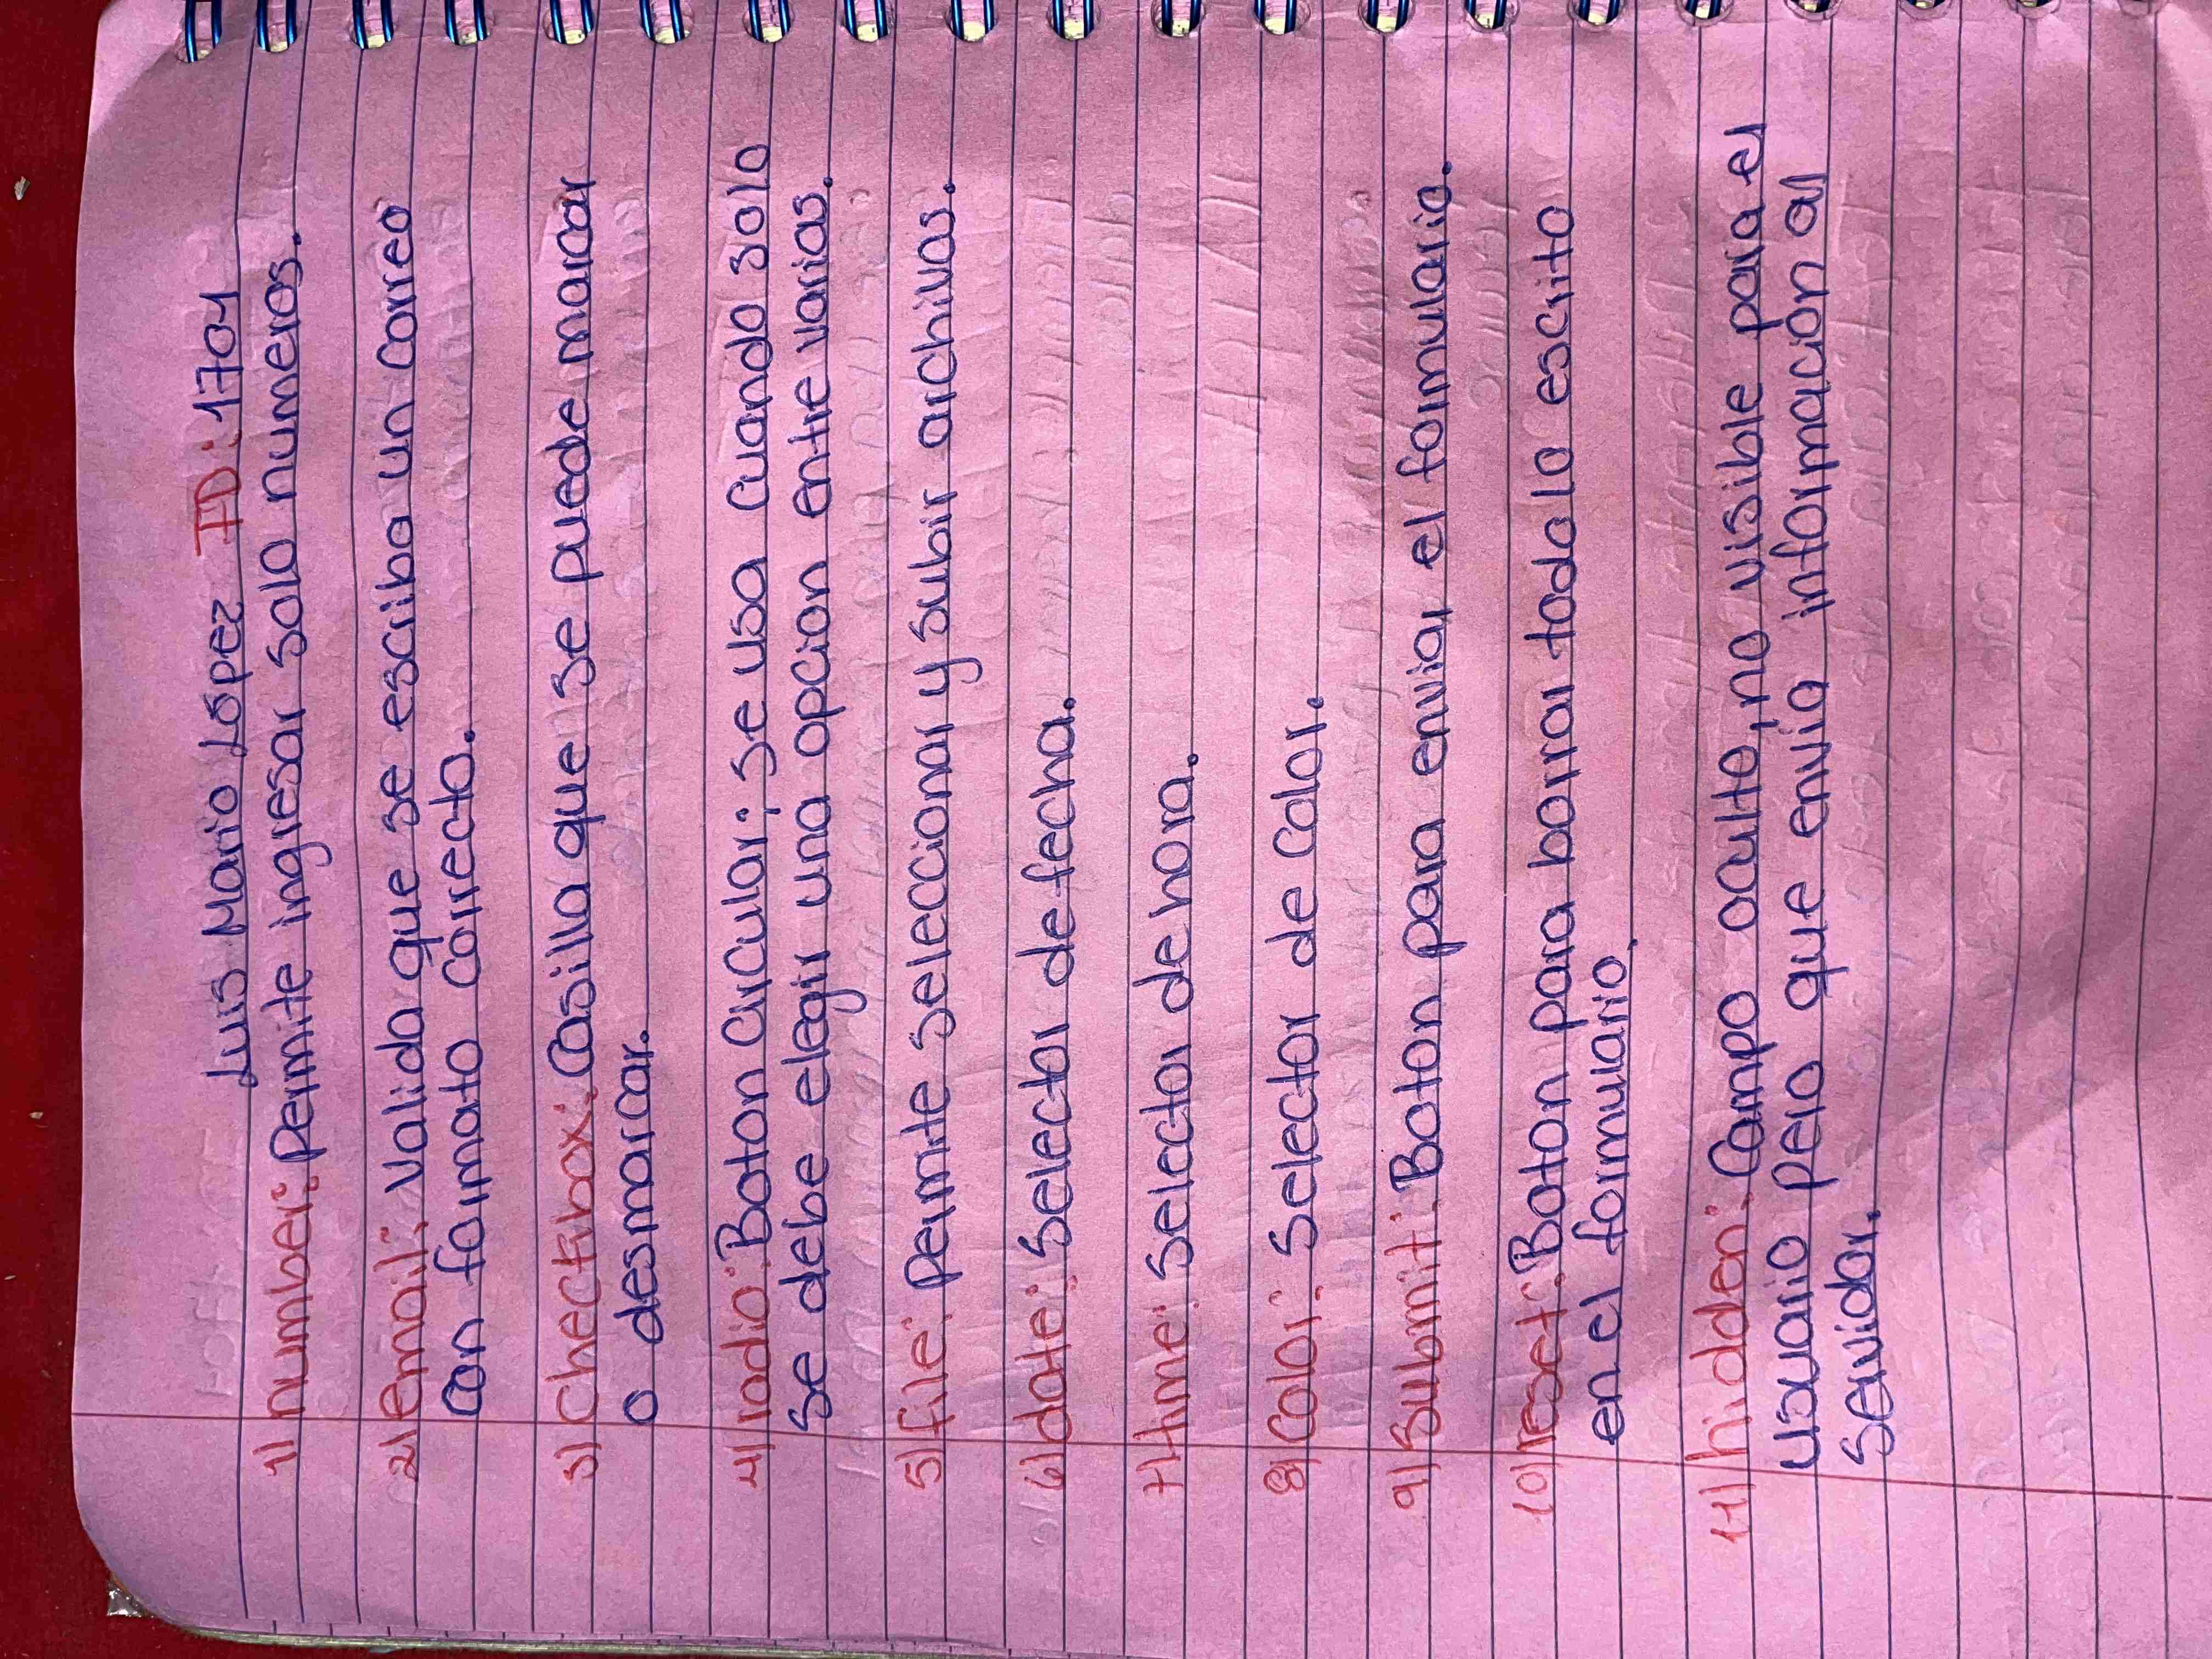 Luis Mario López ID: 1704
1) number: permite ingresar solo numeros.
2) email: Valida que se escriba un correo
con formato correcto.
3) Checkbox: Casilla que se puede marcar
o desmarcar.
4) radio: Boton circular; se usa cuando solo
se debe elegir una opcion entre varias.
5) file: permite seleccionar y subir archivos.
6) date: Selector de fecha.
7) time: Selector de hora.
8) Color: Selector de color.
9) Submit: Boton para enviar el formulario.
10) reset: Boton para borrar todo lo escrito
en el formulario.
11) hidden: Campo oculto, no visible para el
usuario pero que envia información al
Servidor.